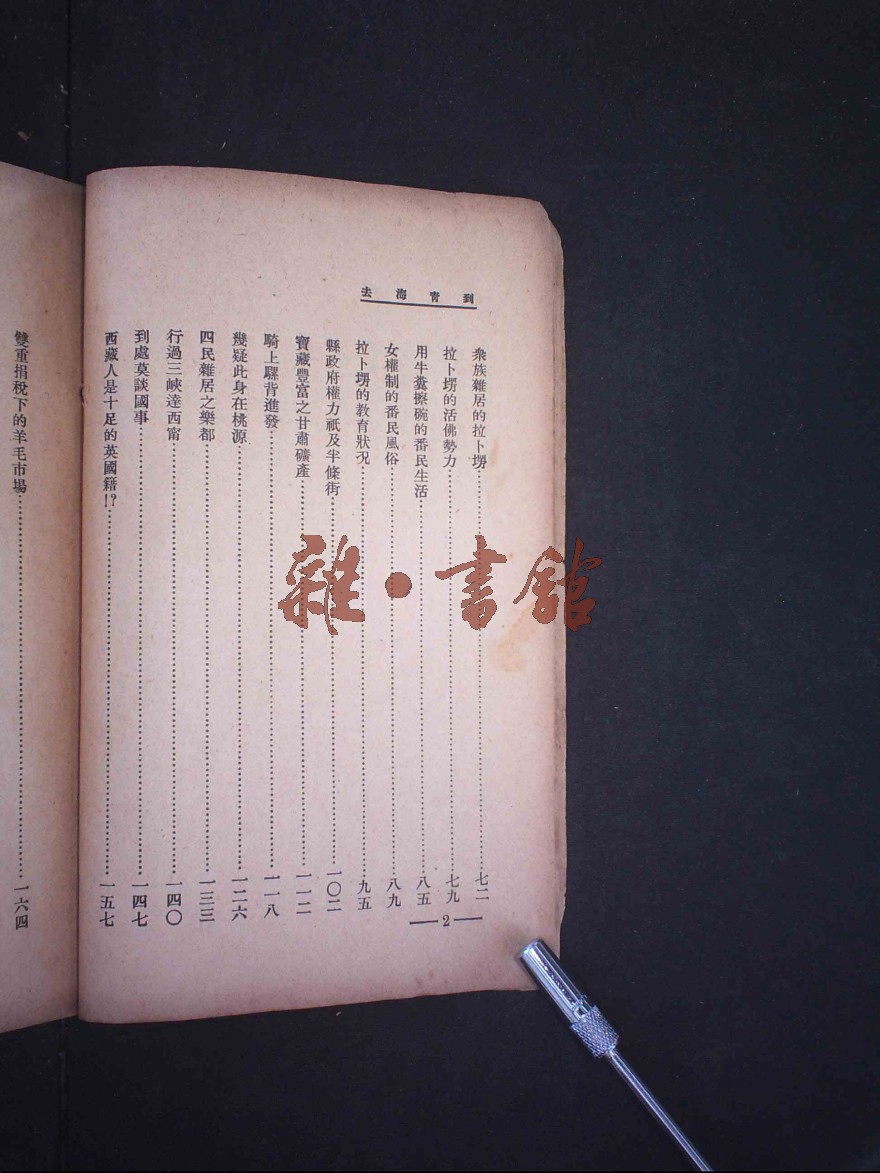 到青海去
衆族雜居的拉卜塄……七二
拉卜塄的活佛勢力……七九
用牛糞擦碗的番民生活……八五
女權制的番民風俗……八九
拉卜塄的教育狀況……九五
縣政府權力祇及半條街……一〇二
寶藏豐富之甘肅礦產……一一二
騎上騾背進發……一一八
幾疑此身在桃源……一二六
四民雜居之樂都……一三三
行過三峽達西甯……一四〇
到處莫談國事……一四七
西藏人是十足的英國籍!?……一五七
2
雙重捐稅下的羊毛市場……一六四
雜·書館